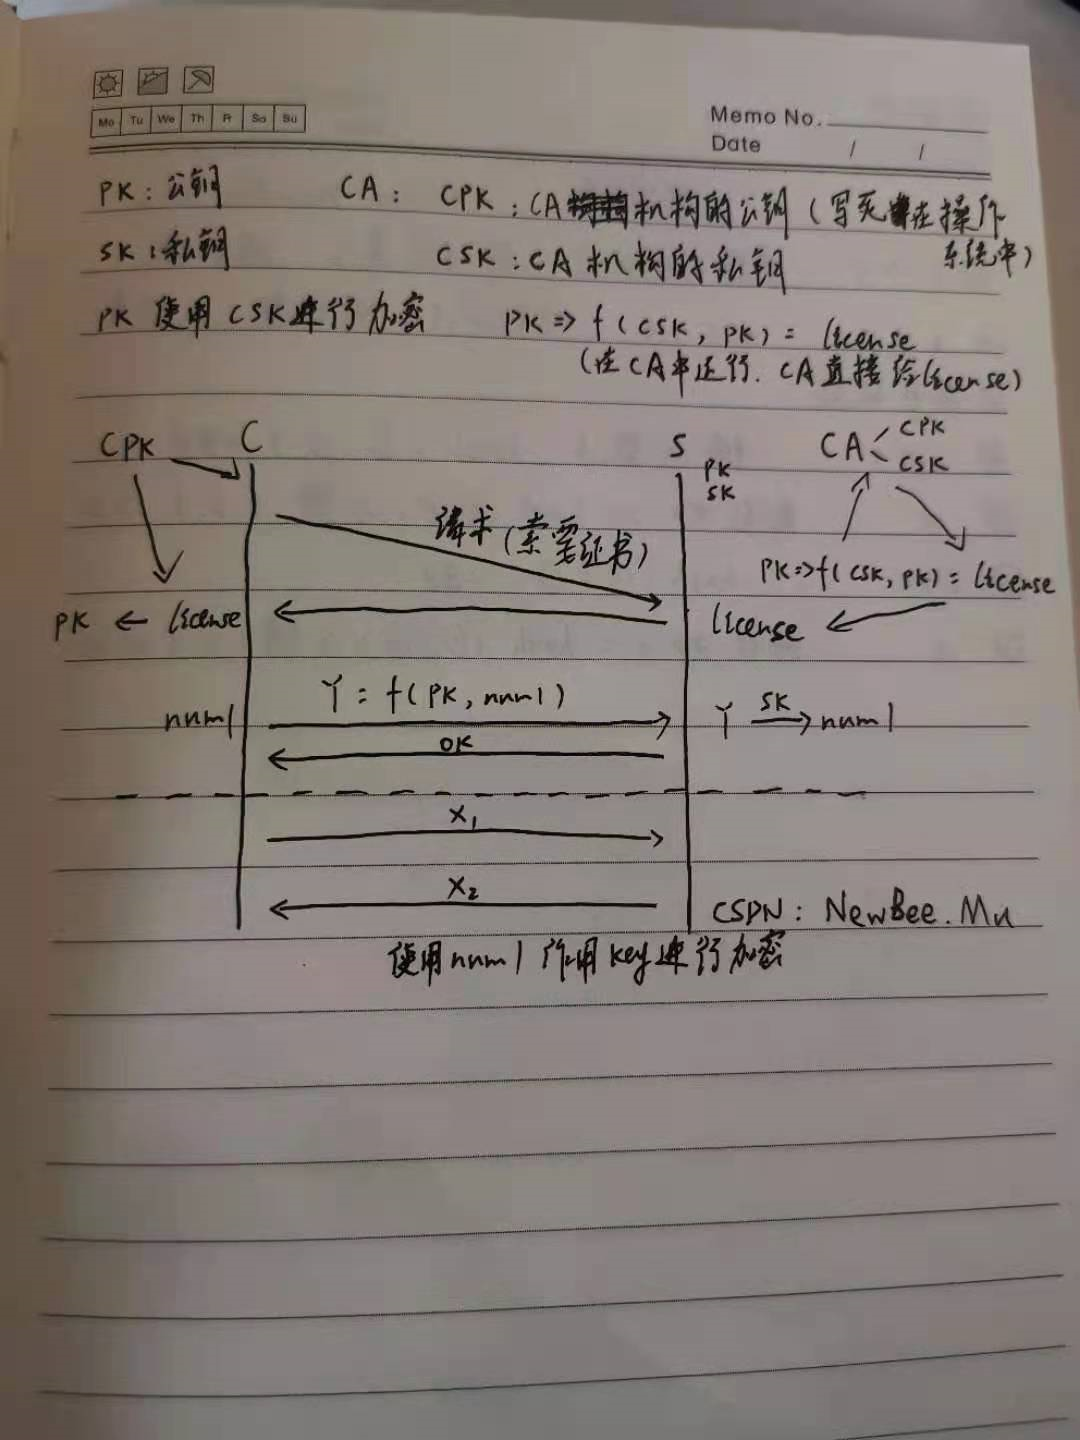 Mo Tu We Th Fr Sa Su
Memo No.
Date / /
PK：公钥 CA： CPK：CA机构的公钥（写死在操作
系统中）
SK：私钥 CSK：CA机构的私钥
PK 使用CSK进行加密 PK => f(CSK, PK) = license
（在CA中运行. CA直接给license）
CPK C S CA CPK
CSK
PK
SK
请求（索要证书）
PK=>f(CSK, PK) = license
PK ← license license
Y = f(PK, num1)
num1 Y SK → num1
OK
X₁
X₂
CSDN: NewBee.Mu
使用num1作用key进行加密